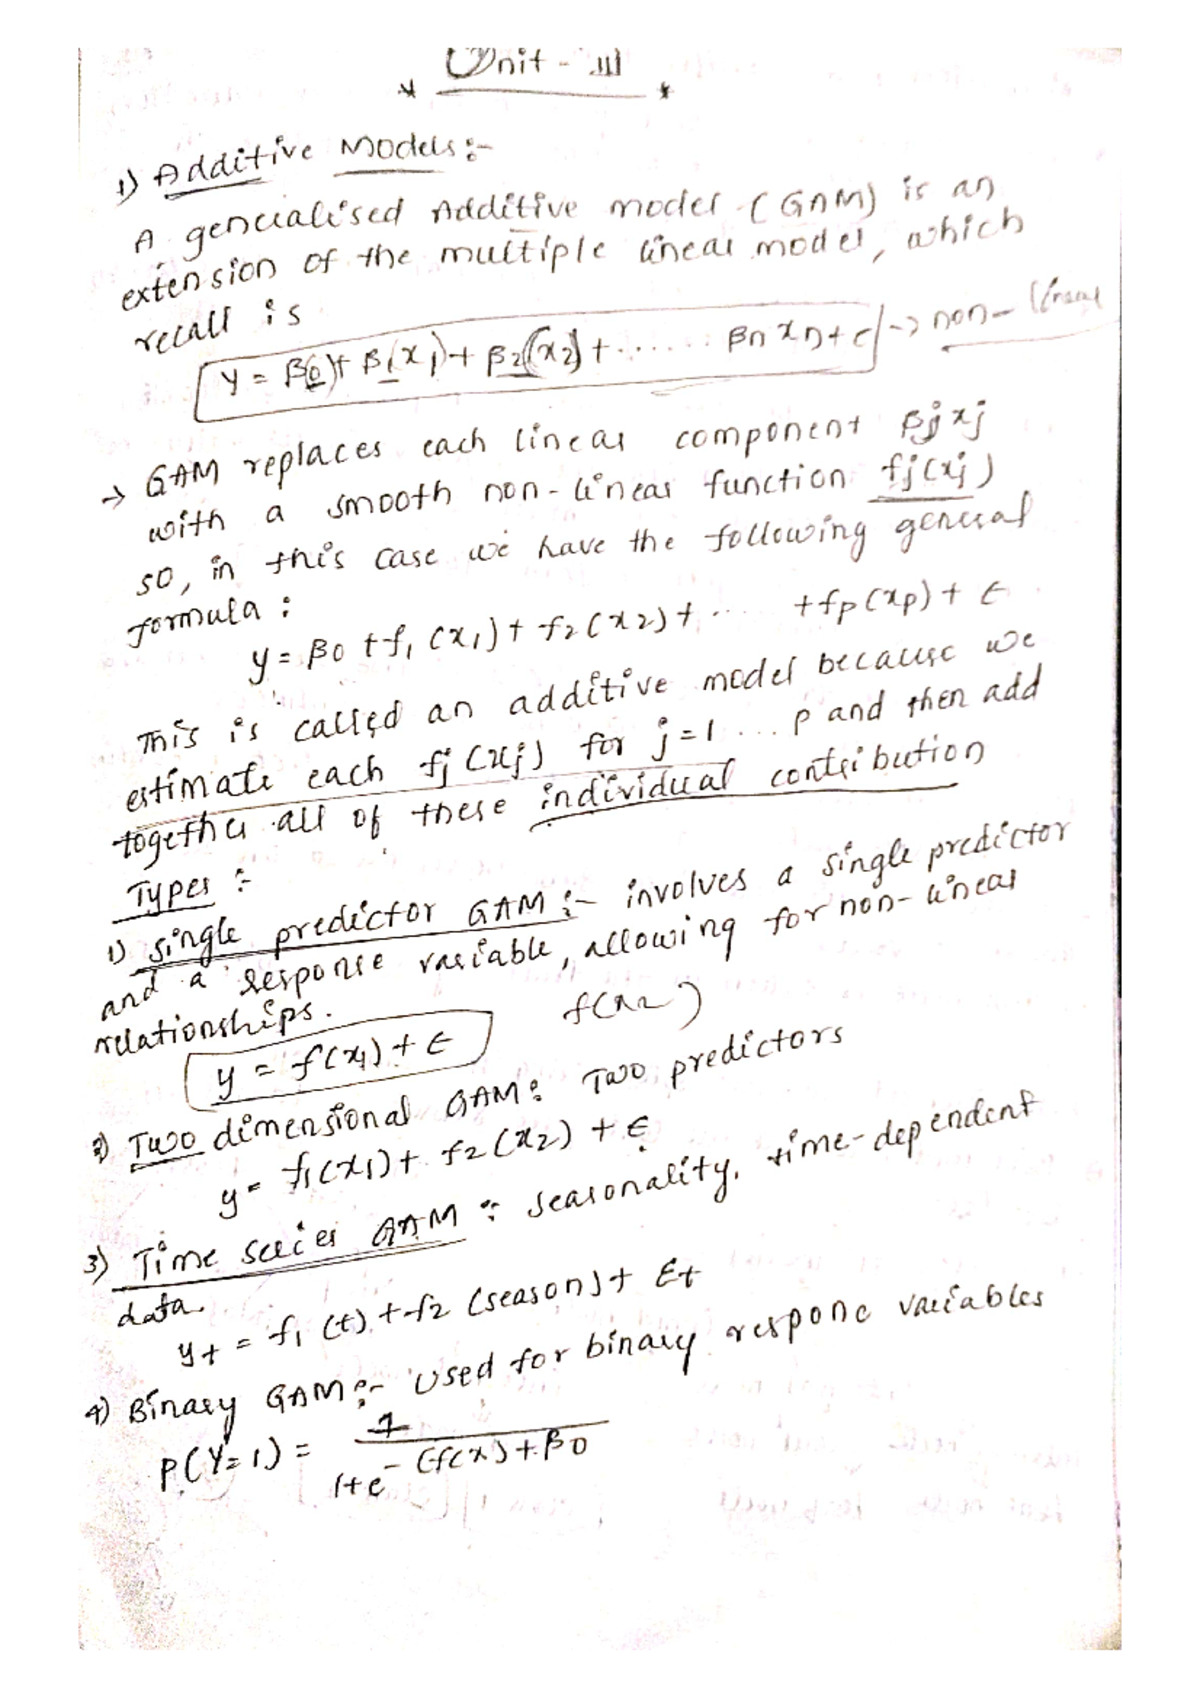 Unit - III
1) Additive Models :-
A generalised Additive model (GAM) is an
extension of the multiple linear model, which
recall is
y = β(0)+ β1(x1)+ β2(x2)+ ...... βn xn+ε -> non-linear
-> GAM replaces each linear component βjxj
with a smooth non-linear function fj(xj)
so, in this case we have the following general
formula :
y = β0 + f1 (x1) + f2 (x2) + ... + fp (xp) + ε
This is called an additive model because we
estimate each fj (xj) for j=1 ... p and then add
together all of these individual contribution
Types :-
1) single predictor GAM :- involves a single predictor
and a response variable, allowing for non-linear
relationships.
y = f(x1) + ε
2) Two dimensional GAM : Two predictors
y = f1(x1) + f2 (x2) + ε
3) Time series GAM : seasonality, time-dependent
data.
yt = f1 (t) + f2 (season) + εt
4) Binary GAM :- used for binary respone variables
P(Y=1) = 1 / 1+e^-(f(x)+β0